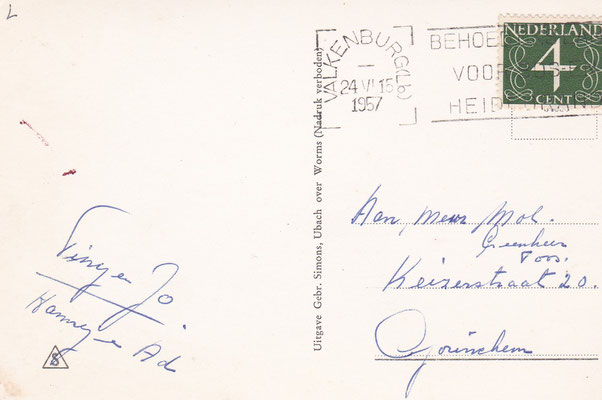 L
VALKENBURG(Lb)
24 VI 15
1957
BEHOE
VOOR
HEI
NEDERLAND
4
CENT
Uitgave Gebr. Simons, Ubach over Worms (Nadruk verboden)
Aan, Mevr Mol.
Toos.
Keizerstraat 20.
Gorinchem
Jo
Ad
8